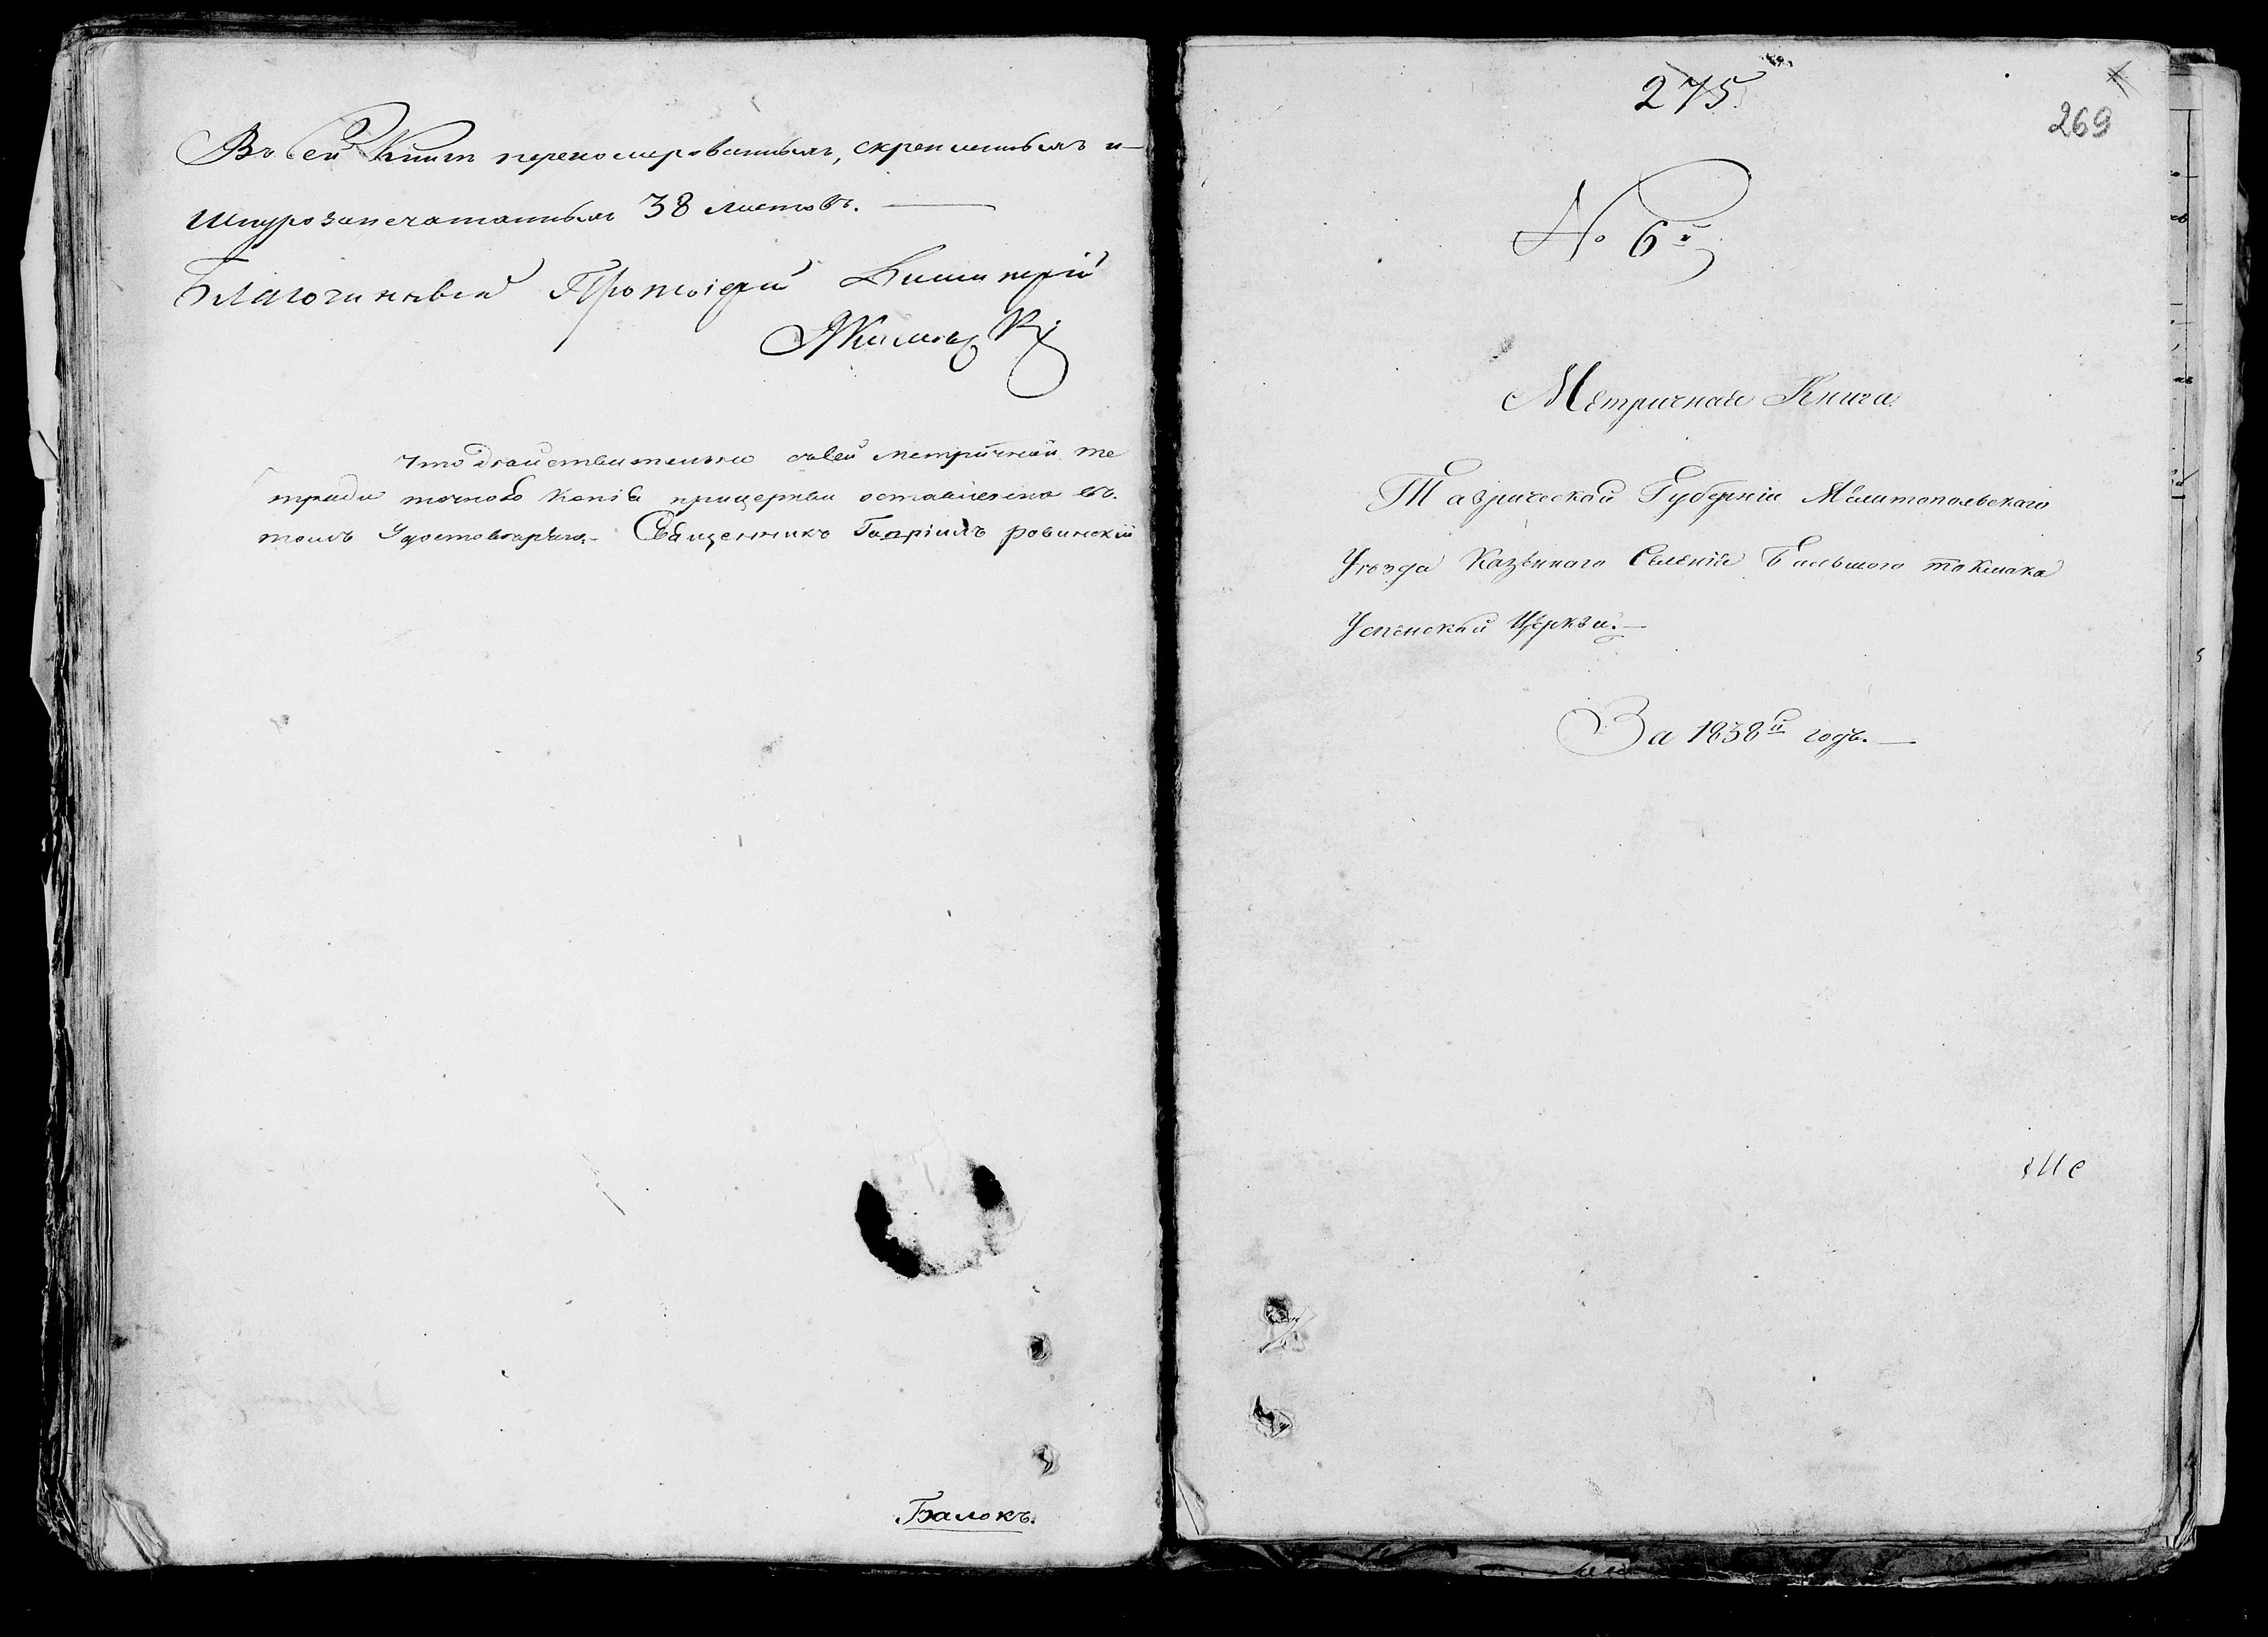 Въ сей Книги перенумерованныхъ, скрепленныхъ и
Шнурозапечатанныхъ 38 листовъ.
Благочинный Протоіерей
что действительно съсей метрической те
тради точная копія прицеркви оставленна въ
томъ Удостоверяю. Священникъ Гавріилъ Ровинскій
Балокъ.
275
269
№ 6й
Метричная Книга
Таврической Губерніи Мелитопольского
Уезда Казенного Селенія Большого токмака
Успенской Церкви.
За 1838й годъ.